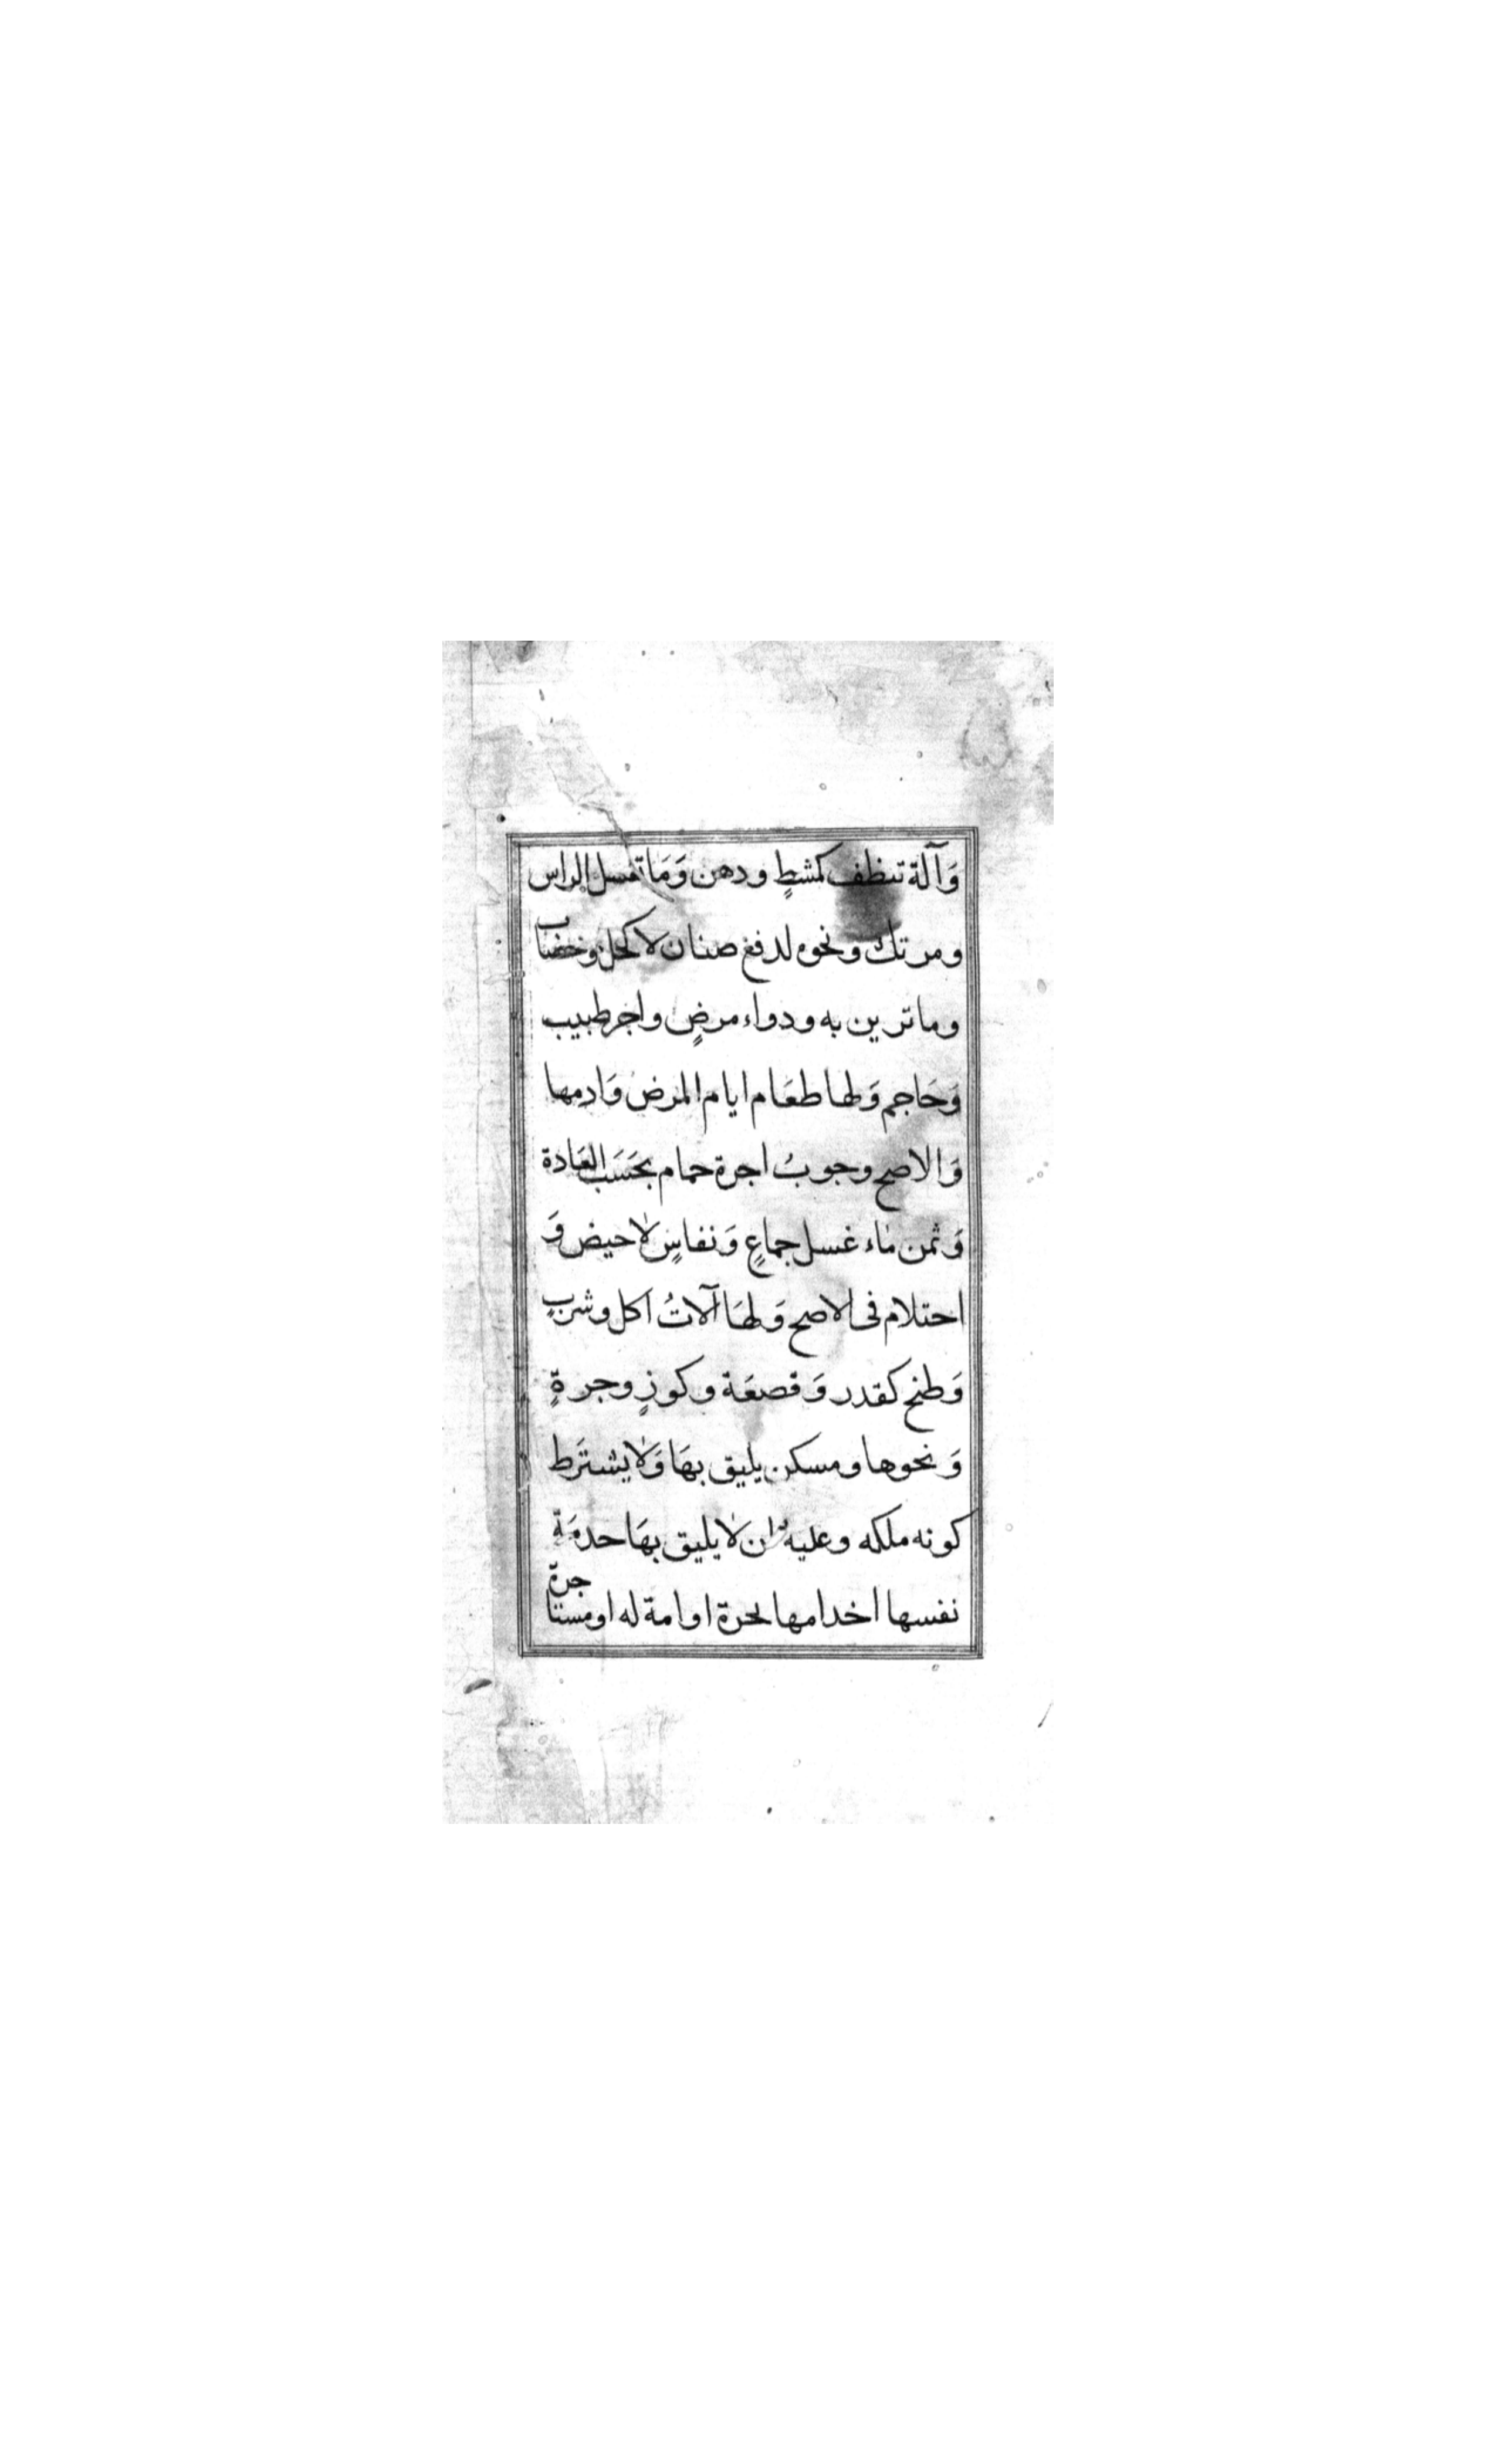 وَآلة تنظف كمشطٍ ودهن وَمَا تغسل الراس
ومرتك ونحوه لدفع صنان لا كحل وخضاب
وما ترين به ودواء مرضٍ واجر طبيب
وَحَاجم وَلها طعَام ايام المرض وَادمها
وَالاصح وجوبُ اجرة حمام بحَسَب العَادة
وَثمن مَاء غسل جماعٍ وَنفاسٍ لا حيض وَ
احتلام فى الاصح وَلهَا آلاتُ اكل وشربٍ
وَطبخ كقدر وَقصعَة وكوزٍ وجرةٍ
وَنحوها ومسكن يليق بهَا وَلا يشترَط
كونه ملكه وعليه لمن لا يليق بهَا خدمَة
نفسها اخدامها بحرة او امة له او مستاجرة